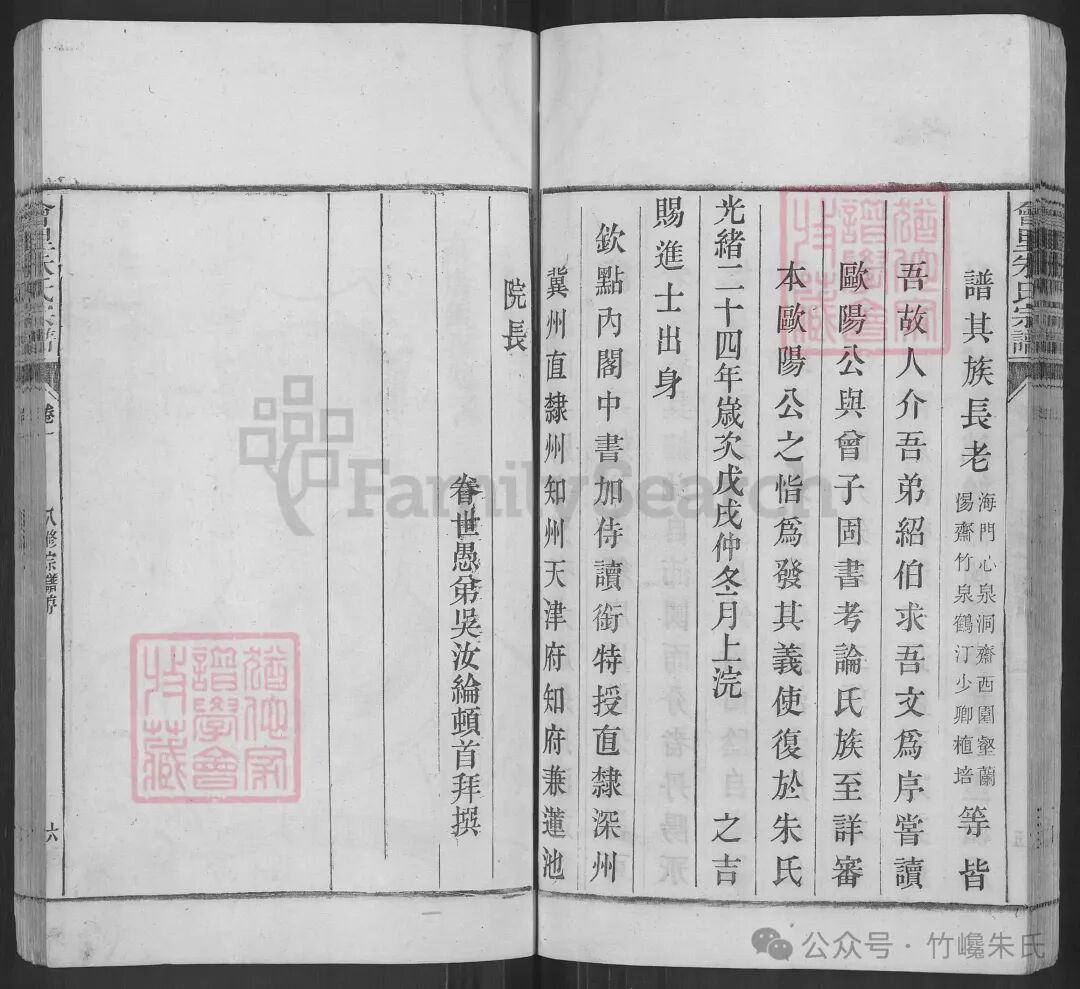 會里朱氏宗譜
譜其族長老
海門心泉洞齋西園壑蘭
惕齋竹泉鶴汀少卿植培
等皆
吾故人介吾弟紹伯求吾文爲序嘗讀
歐陽公與曾子固書考論氏族至詳審
本歐陽公之恉爲發其義使復於朱氏
光緒二十四年歲次戊戌仲冬月上浣 之吉
賜進士出身
欽點內閣中書加侍讀銜特授直隸深州
冀州直隸州知州天津府知府兼蓮池
院長
眷世愚弟吳汝綸頓首拜撰
會里朱氏宗譜
卷一
八修宗譜序
六
譜學會
收藏
譜學會
收藏
FamilySearch
公众号·竹巉朱氏